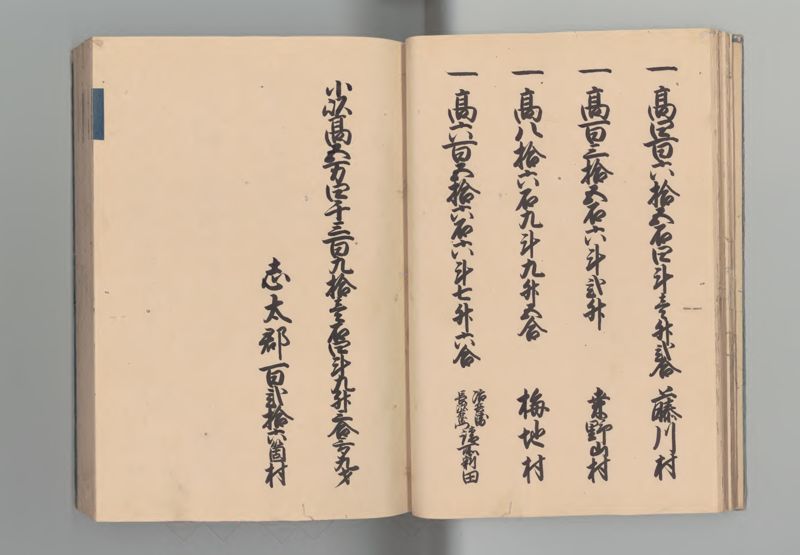 一高四百六拾五石四斗壱升弐合 藤川村
一高百三拾五石六斗弐升 桑野山村
一高八拾六石九斗九升五合 梅地村
一高六百五拾六石六斗七升六合 新田
小以高五万四千三百九拾壱石四斗九升三合六勺九才
志太郡百弐拾六箇村